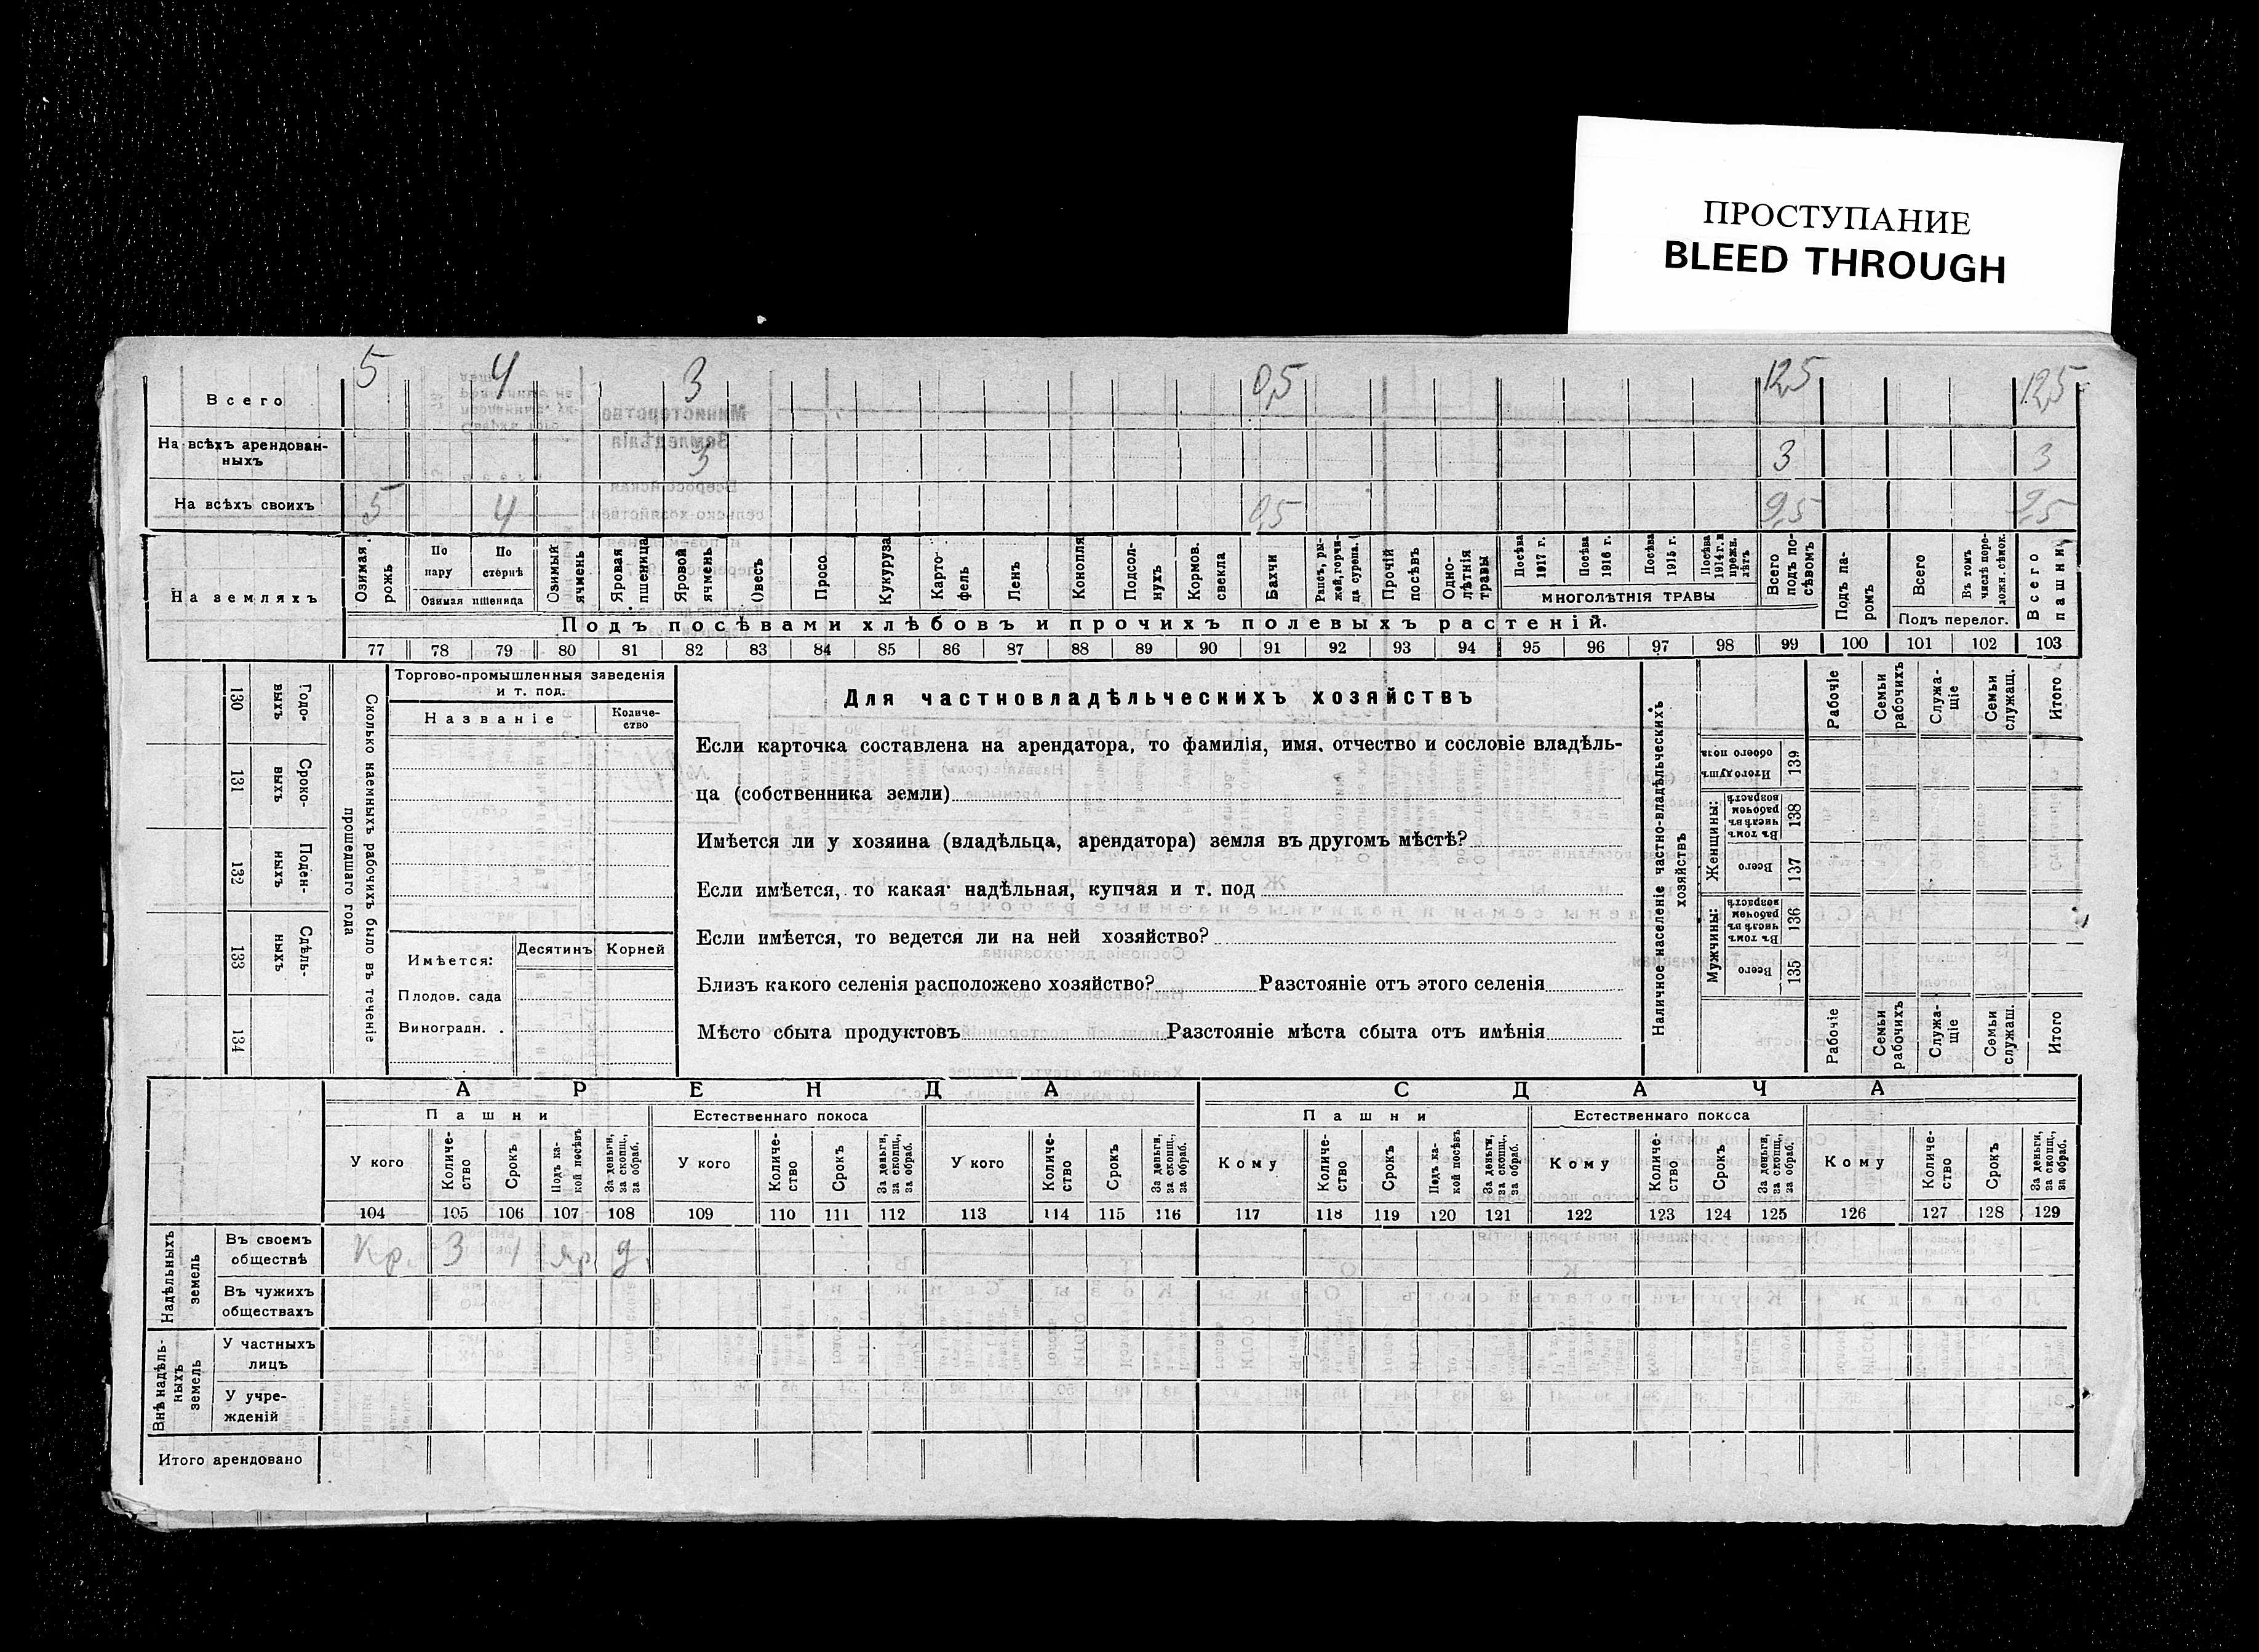 ПРОСТУПАНИЕ
BLEED THROUGH
5 4 3 0,5 12,5 12,5
Всего
На всѣхъ арендован-
ныхъ 3 3 3
На всѣхъ своихъ 5 4 0,5 9,5 9,5
На земляхъ
Озимая рожь
По пару
По стернѣ
Озимая пшеница
Озимый ячмень
Яровая пшеница
Яровой ячмень
Овесъ
Просо
Кукуруза
Карто-
фель
Ленъ
Конопля
Подсол-
нухъ
Кормов.
свекла
Бахчи
Рапсъ, ры-
жей, горчи-
ца сурепа.
Прочій
посѣвъ
Одно-
лѣтнія
травы
Посѣва
1917 г.
Посѣва
1916 г.
Посѣва
1915 г.
Посѣва
1914 г. и
прежн.
лѣтъ
МНОГОЛѢТНІЯ ТРАВЫ
Всего
подъ по-
сѣвомъ
Подъ па-
ромъ
Всего
Въ томъ
числѣ перо-
ложн. сѣнок.
Подъ перелог.
Всего
пашни
Подъ посѣвами хлѣбовъ и прочихъ полевыхъ растеній.
77 78 79 80 81 82 83 84 85 86 87 88 89 90 91 92 93 94 95 96 97 98 99 100 101 102 103
130 Годо-
выхъ
131 Сроко-
выхъ
132 Поден-
ныхъ
133 Сдѣль-
ныхъ
134
Сколько наемныхъ рабочихъ было въ теченіе
прошедшаго года
Торгово-промышленныя заведенія
и т. под.
Названіе
Количе-
ство
Имѣется:
Десятинъ Корней
Плодов. сада
Виноградн. .
Для частновладѣльческихъ хозяйствъ
Если карточка составлена на арендатора, то фамилія, имя, отчество и сословіе владѣль-
ца (собственника земли)
Имѣется ли у хозяина (владѣльца, арендатора) земля въ другомъ мѣстѣ?
Если имѣется, то какая: надѣльная, купчая и т. под
Если имѣется, то ведется ли на ней хозяйство?
Близъ какого селенія расположено хозяйство? Разстояніе отъ этого селенія
Мѣсто сбыта продуктовъ Разстояніе мѣста сбыта отъ имѣнія
Наличное населеніе частно-владѣльческихъ
хозяйствъ
Рабочіе
Семьи
рабочихъ
Служа-
щіе
Семьи
служащ.
Итого
Итого душ
обоего пола
139
Женщины:
Въ томъ
числѣ въ
рабочемъ
возрастѣ
138
Всего
137
Мужчины:
Въ томъ
числѣ въ
рабочемъ
возрастѣ
136
Всего
135
Рабочіе
Семьи
рабочихъ
Служа-
щіе
Семьи
служащ.
Итого
АРЕНДА СДАЧА
Пашни Естественнаго покоса Пашни Естественнаго покоса
У кого
Количе-
ство
Срокъ
Подъ ка-
кой посѣвъ
За деньги,
за скопщ.,
за обраб.
У кого
Количе-
ство
Срокъ
За деньги,
за скопщ.,
за обраб.
У кого
Количе-
ство
Срокъ
За деньги,
за скопщ.,
за обраб.
Кому
Количе-
ство
Срокъ
Подъ ка-
кой посѣвъ
За деньги,
за скопщ.,
за обраб.
Кому
Количе-
ство
Срокъ
За деньги,
за скопщ.,
за обраб.
Кому
Количе-
ство
Срокъ
За деньги,
за скопщ.,
за обраб.
104 105 106 107 108 109 110 111 112 113 114 115 116 117 118 119 120 121 122 123 124 125 126 127 128 129
Надѣльныхъ
земель
Въ своемъ
обществѣ Кр. 3 1 яр. д.
Въ чужихъ
обществахъ
Внѣ надѣль-
ныхъ
земель
У частныхъ
лицъ
У учре-
жденій
Итого арендовано